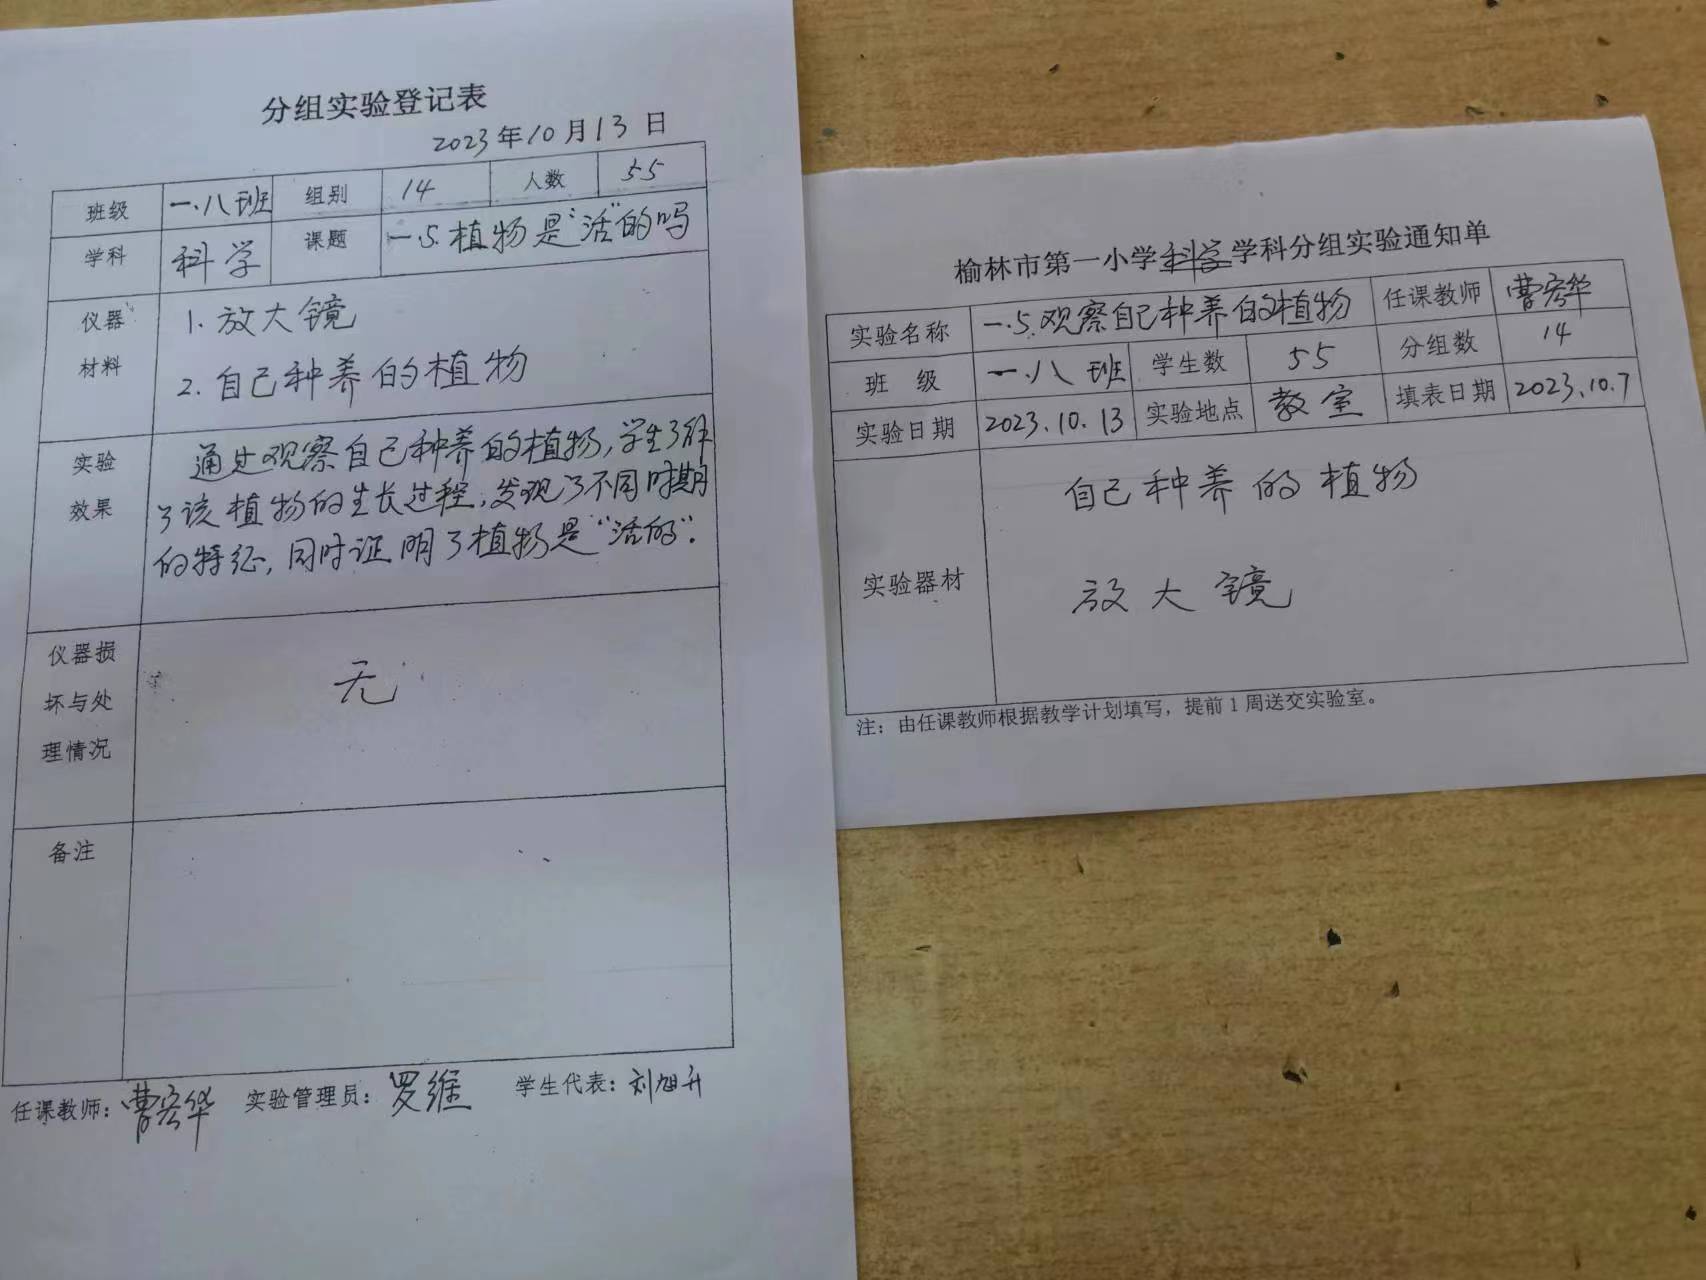 分组实验登记表
2023年10月13日
班级 一.八班 组别 14 人数 55
学科 科学 课题 一.5.植物是“活”的吗
仪器材料
1.放大镜
2.自己种养的植物
实验效果
通过观察自己种养的植物,学生了解
了该植物的生长过程,发现了不同时期
的特征,同时证明了植物是“活的”.
仪器损坏与处理情况
无
备注
任课教师:曹宏华 实验管理员:罗维 学生代表:刘旭升
榆林市第一小学科学学科分组实验通知单
实验名称 一.5.观察自己种养的植物 任课教师 曹宏华
班 级 一.八班 学生数 55 分组数 14
实验日期 2023.10.13 实验地点 教室 填表日期 2023.10.7
实验器材
自己种养的植物
放大镜
注：由任课教师根据教学计划填写，提前1周送交实验室。